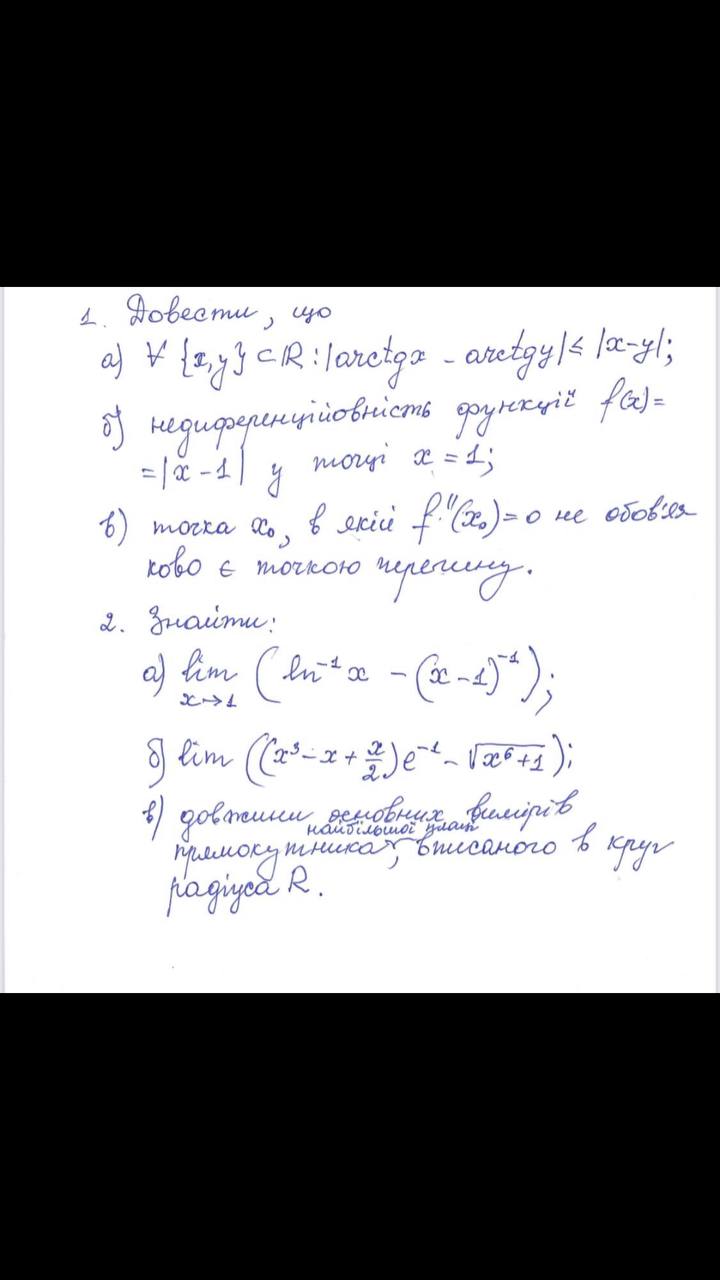 1. Довести, що
а) ∀ {x,y} ⊂ R : |arctgx - arctgy| ≤ |x-y|;
б) недиференційовність функції f(x)=
=|x-1| у точці x = 1;
в) точка x₀, в якій f''(x₀)=0 не обов'яз
ково є точкою перегину.
2. Знайти:
а) lim (ln⁻¹x - (x-1)⁻¹);
x→1
б) lim ((x³-x+x/2)e⁻¹ - √(x⁶+1));
в) довжини основних вимірів
найбільшої площ
прямокутника, вписаного в круг
радіуса R.